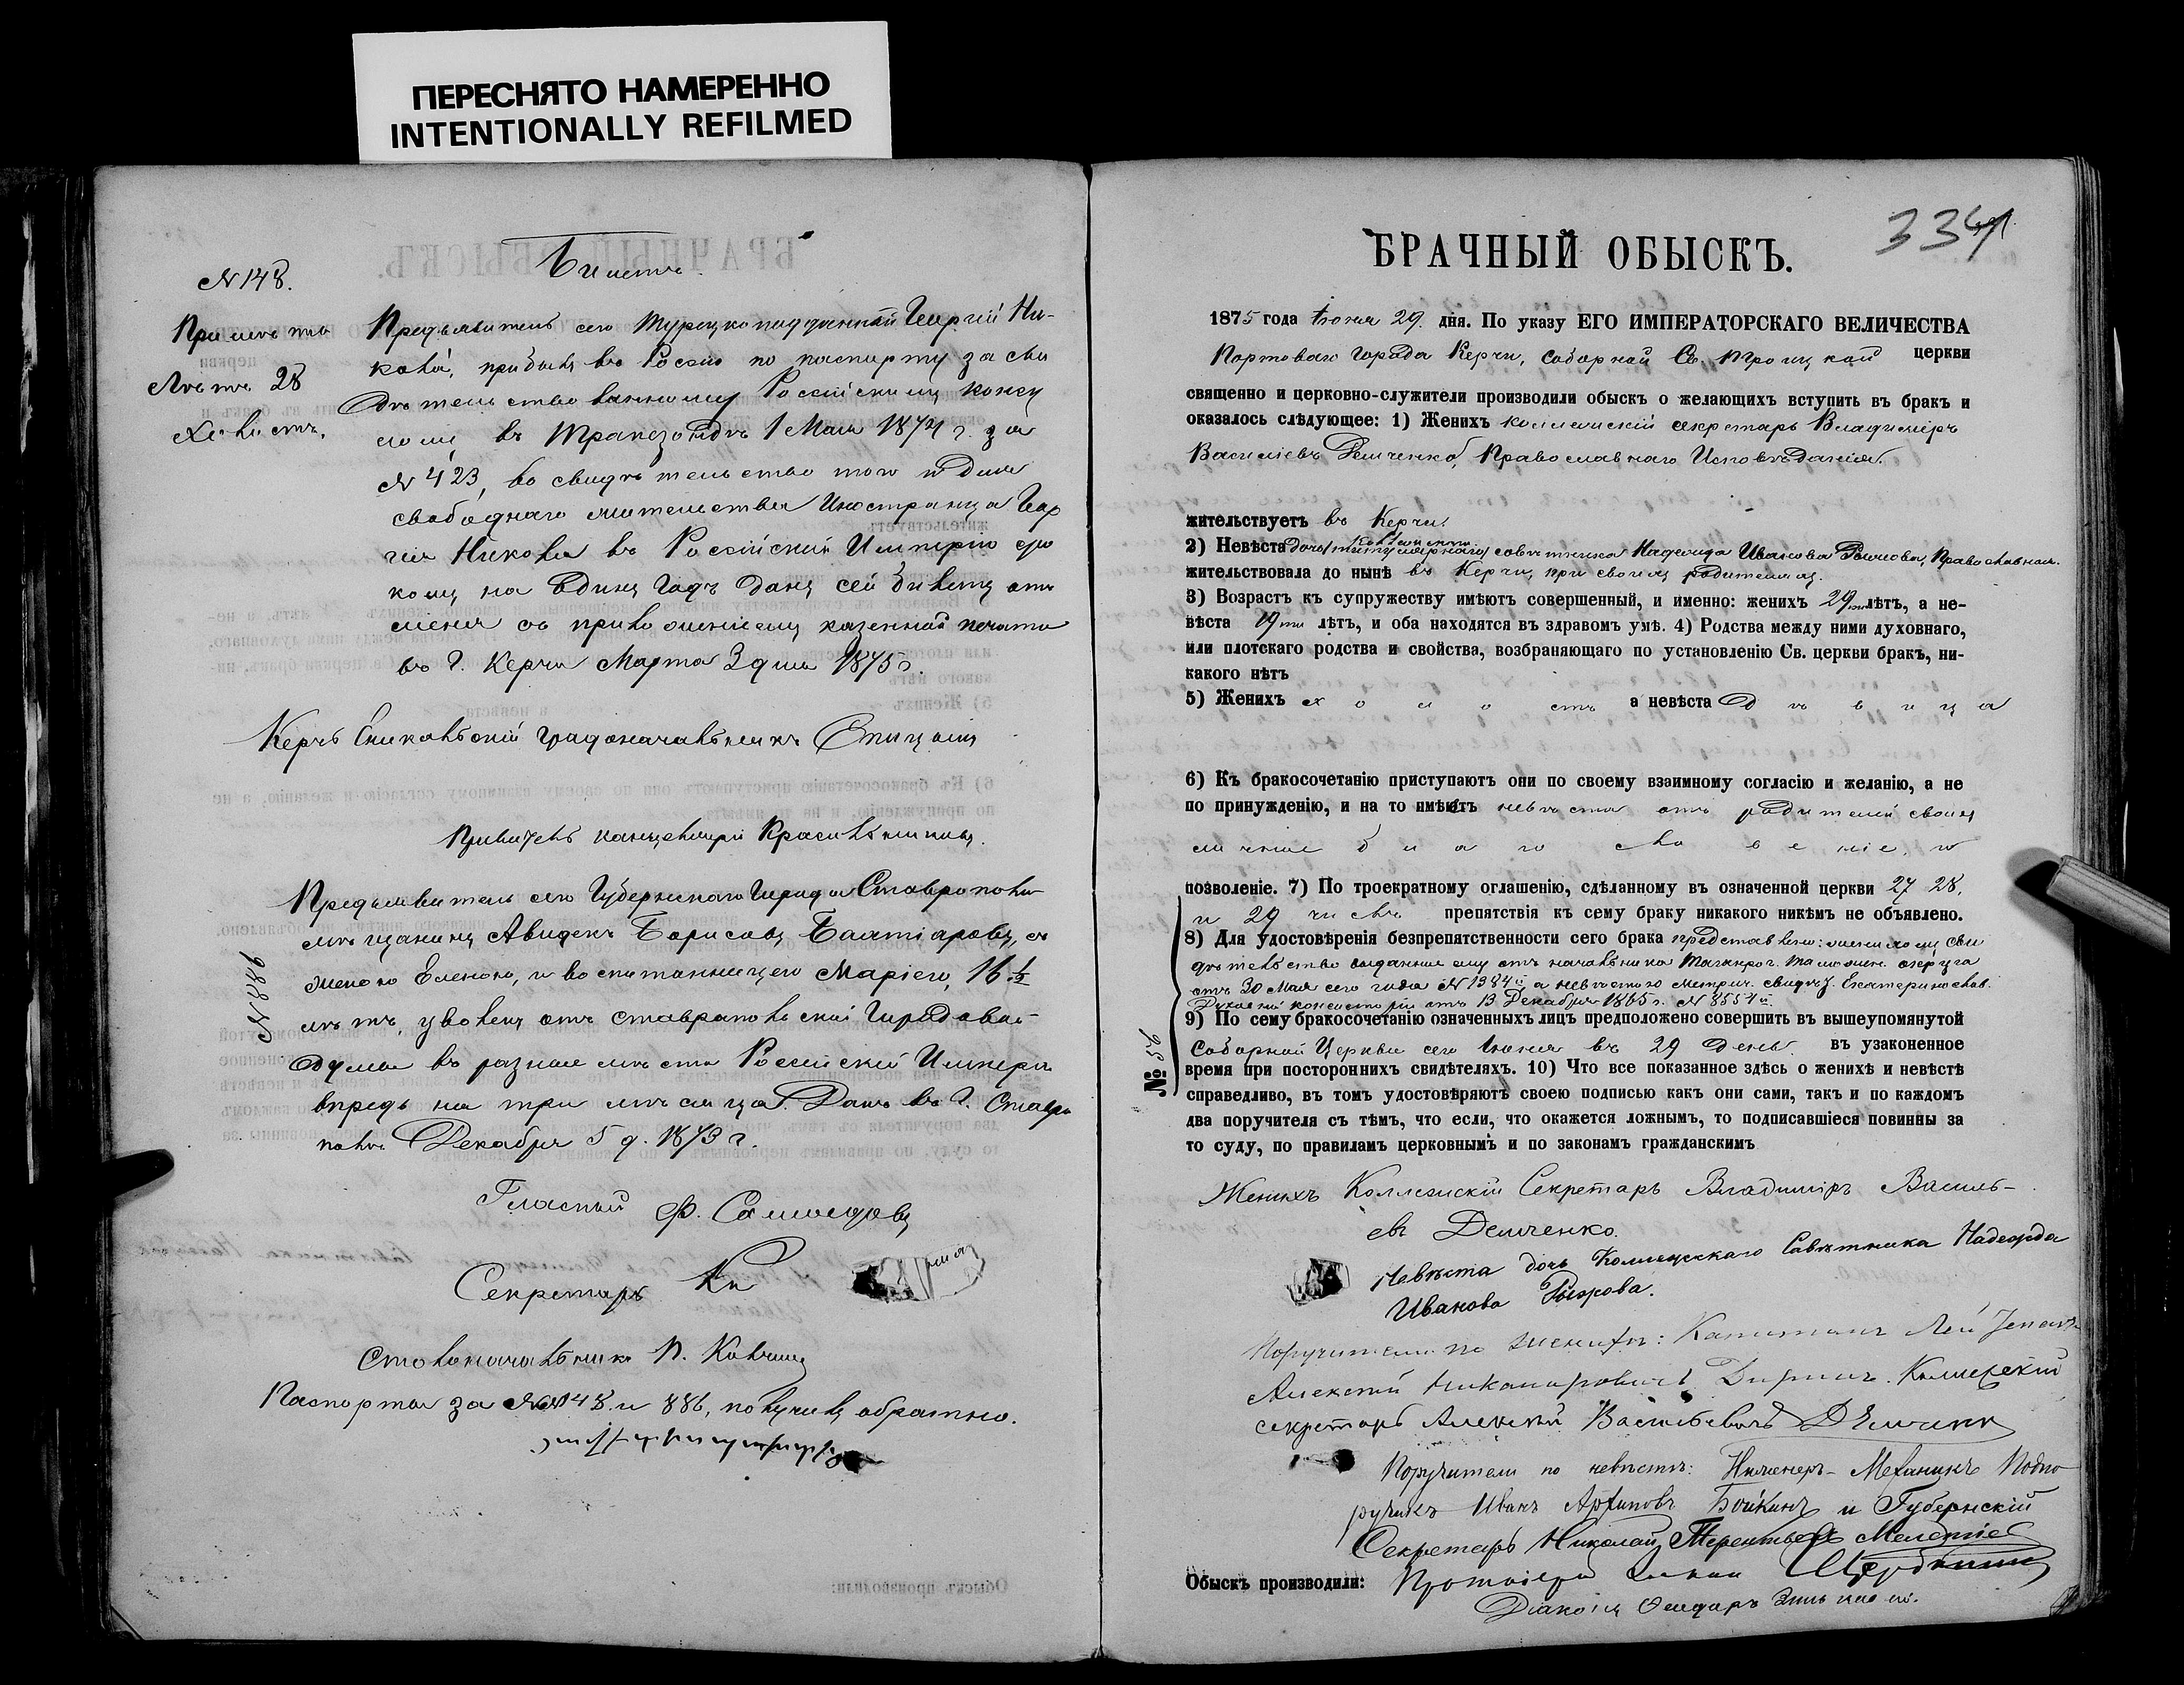 ПЕРЕСНЯТО НАМЕРЕННО
INTENTIONALLY REFILMED
Билетъ.
№ 148.
Примѣты
Лѣтъ 28
Холостъ.
Предъявитель сего Турецкоподданный Георгій Ни-
кола, прибывъ въ Россію по паспорту засви
дѣтельствованному Россійскимъ консу
ломъ въ Трапезондѣ 1 Мая 1874 г. за
№ 423, во свидѣтельство того и для
свободнаго жительства Иностранца Геор
гія Николы въ Россійской Имперіи сро
комъ на одинъ годъ данъ сей билетъ отъ
меня съ приложеніемъ казенной печати
въ г. Керчи Марта 3 дня 1875 г.
Керчь Еникольскій Градоначальникъ Спицынъ
Правитель канцеляріи Красильниковъ.
№ 886
Предъявитель сего Губернскаго города Ставрополя
мѣщанинъ Авидекъ Борисовъ Балтіаровъ, съ
женою Еленою, и воспитанницею Маріею, 16 ½
лѣтъ, уволенъ отъ Ставропольской Городовой
думы въ разныя мѣста Россійской Имперіи
впредь на три мѣсяца. Данъ въ г. Ставро
полѣ Декабря 5 д. 1873 г.
Гласный Ф. Самоедовъ
Секретарь
Столоначальникъ П.
Паспорты за №№ 148 и 886, получилъ обратно.
334
БРАЧНЫЙ ОБЫСКЪ.
1875 года Іюня 29. дня. По указу ЕГО ИМПЕРАТОРСКАГО ВЕЛИЧЕСТВА
Портоваго города Керчи, соборной Св. Троицкой церкви
священно и церковно-служители производили обыскъ о желающихъ вступить въ бракъ и
оказалось слѣдующее: 1) Женихъ коллежскій секретарь Владиміръ
Василіевъ Демченко, Православнаго Исповѣданія.
жительствуетъ въ Керчи.
2) Невѣста дочь титулярнаго совѣтника Надежда Иванова Рыжова, Православнаго.
жительствовала до нынѣ въ Керчи, при своихъ родителяхъ.
3) Возрастъ къ супружеству имѣютъ совершенный, и именно: женихъ 29ти лѣтъ, а не-
вѣста 19ти лѣтъ, и оба находятся въ здравомъ умѣ. 4) Родства между ними духовнаго,
или плотскаго родства и свойства, возбраняющаго по установленію Св. церкви бракъ, ни-
какого нѣтъ
5) Женихъ холостъ а невѣста дѣвица
6) Къ бракосочетанію приступаютъ они по своему взаимному согласію и желанію, а не
по принужденію, и на то имѣетъ невѣста отъ родителей своихъ
личное благословеніе и
позволеніе. 7) По троекратному оглашенію, сдѣланному въ означенной церкви 27 28,
и 29 числѣ препятствія къ сему браку никакого никѣмъ не объявлено.
8) Для удостовѣренія безпрепятственности сего брака представлены: женихомъ сви
дѣтельство выданное ему отъ начальника Таганрог. таможен. округа
отъ 30 Мая сего года № 1984й а невѣстою метрич. свидѣт. Екатеринослав.
Духовной консисторіи отъ 13 Декабря 1865 г. № 8554й.
9) По сему бракосочетанію означенныхъ лицъ предположено совершить въ вышеупомянутой
Соборной Церкви сего Іюня въ 29 день. въ узаконенное
№ 56
время при постороннихъ свидѣтеляхъ. 10) Что все показанное здѣсь о женихѣ и невѣстѣ
справедливо, въ томъ удостовѣряютъ своею подписью какъ они сами, такъ и по каждомъ
два поручителя съ тѣмъ, что если, что окажется ложнымъ, то подписавшіеся повинны за
то суду, по правиламъ церковнымъ и по законамъ гражданскимъ
Женихъ Коллежскій Секретарь Владиміръ Василь-
евъ Демченко.
Невѣста дочь Коллежскаго Совѣтника Надежда
Иванова Рыжова.
Поручители по женихѣ: Капитанъ Лей
Алексѣй Никаноровичъ Коллежскій
секретарь Алексѣй Васильевичъ Демченко
Поручители по невѣстѣ: Инженеръ-Механикъ Подпо
ручикъ Иванъ Архиповъ Бойкинъ и Губернскій
Секретарь Николай Терентьевъ
Обыскъ производили: Протоіерей
Діаконъ Ѳеодоръ